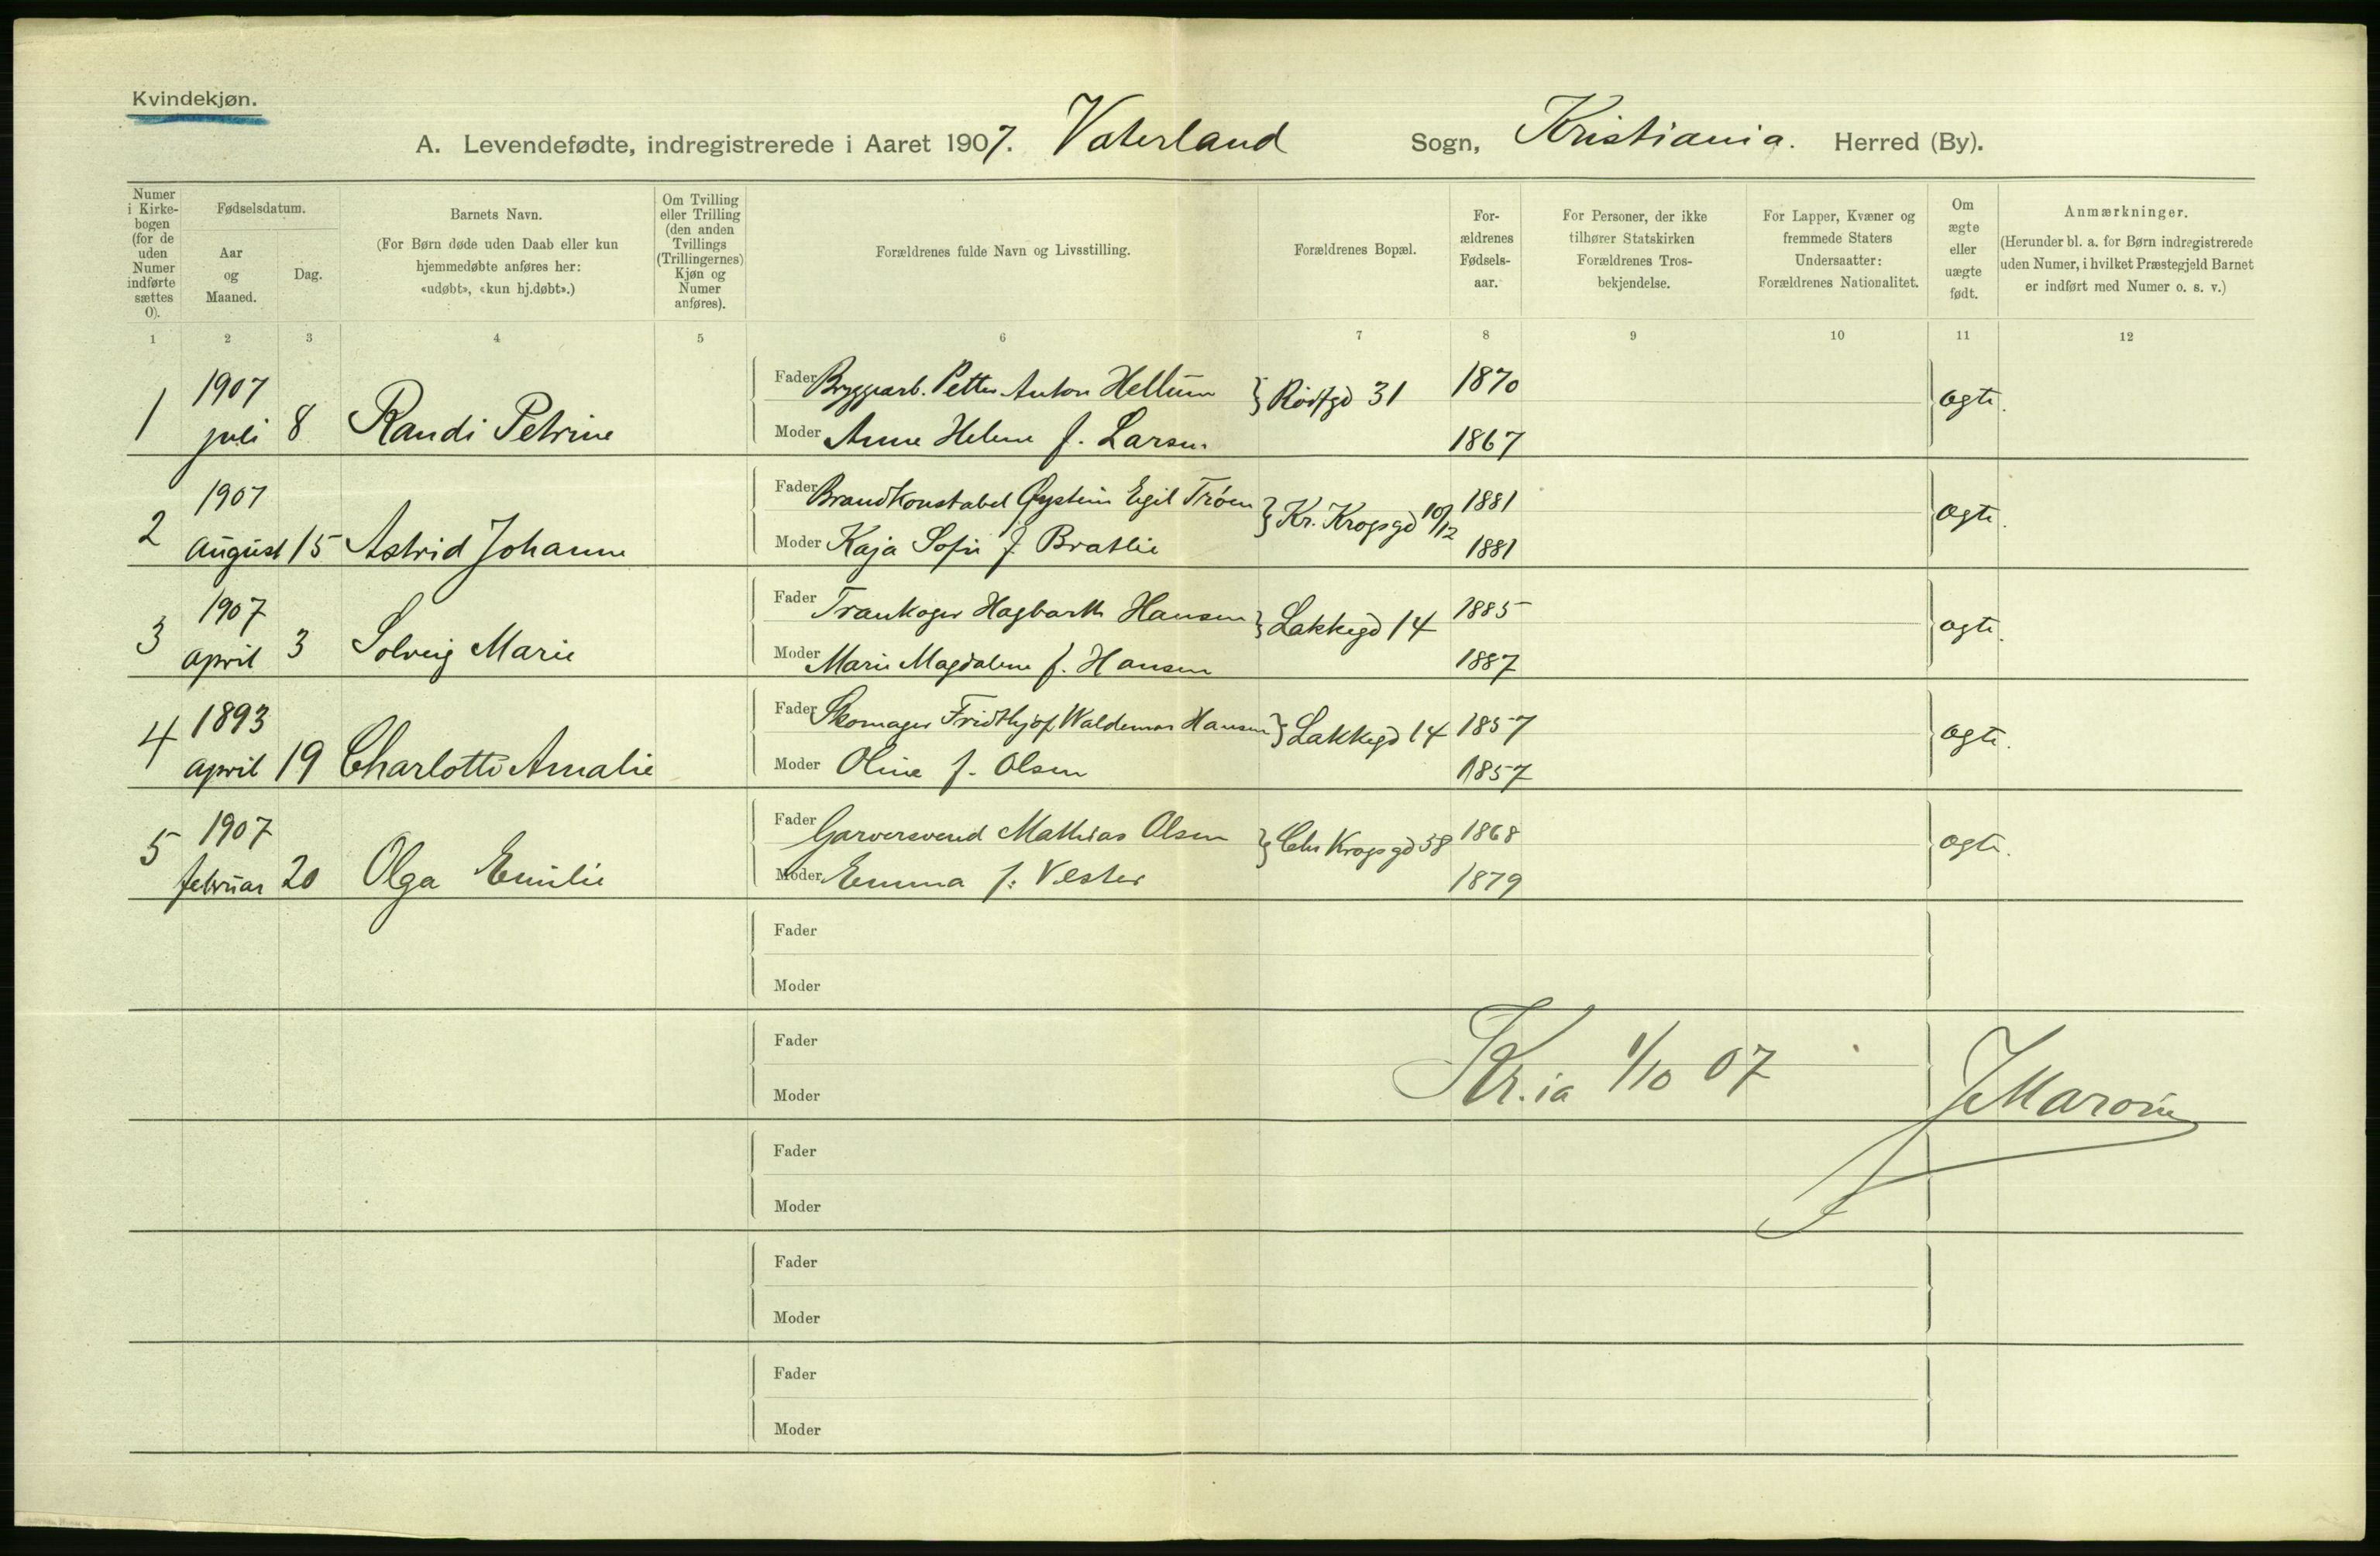 Kvindekjøn.
A. Levendefødte, indregistrerede i Aaret 1907. Vaterland Sogn, Kristiania. Herred (By).
Numer i Kirkebogen (for de uden Numer indførte sættes 0).
Fødselsdatum.
Aar og Maaned.
Dag.
Barnets Navn.
(For Børn døde uden Daab eller kun hjemmedøbte anføres her: «udøbt», «kun hj.døbt».)
Om Tvilling eller Trilling (den anden Tvillings (Trillingernes) Kjøn og Numer anføres).
Forældrenes fulde Navn og Livsstilling.
Forældrenes Bopæl.
Forældrenes Fødselsaar.
For Personer, der ikke tilhører Statskirken Forældrenes Trosbekjendelse.
For Lapper, Kvæner og fremmede Staters Undersaatter: Forældrenes Nationalitet.
Om ægte eller uægte født.
Anmærkninger.
(Herunder bl. a. for Børn indregistrerede uden Numer, i hvilket Præstegjeld Barnet er indført med Numer o. s. v.)
1 2 3 4 5 6 7 8 9 10 11 12
1 1907 juli 8 Randi Petrine
Fader Bryggarb. Petter Anton Hellum Rødfgd 31 1870 ægte.
Moder Anne Helene f. Larsen 1867
2 1907 August 15 Astrid Johanne
Fader Brandkonstabel Øystein Egil Trøen Kr. Krogsgd 10/12 1881 ægte.
Moder Kaja Sofie f. Bratlie 1881
3 1907 april 3 Solveig Marie
Fader Trankoger Hagbarth Hansen Lakkegd 14 1885 ægte.
Moder Marie Magdalene f. Hansen 1887
4 1893 april 19 Charlotte Amalie
Fader Skomager Fridthjof Waldemar Hansen Lakkegd 14 1857 ægte.
Moder Oline f. Olsen 1857
5 1907 februar 20 Olga Emilie
Fader Garversvend Mathias Olsen Chr Krogsgd 58 1868 ægte.
Moder Emma f. Vester 1879
Fader
Moder
Fader
Kr.ia 1/10 07
Moder
Fader
Moder
Fader
Moder
Fader
Moder